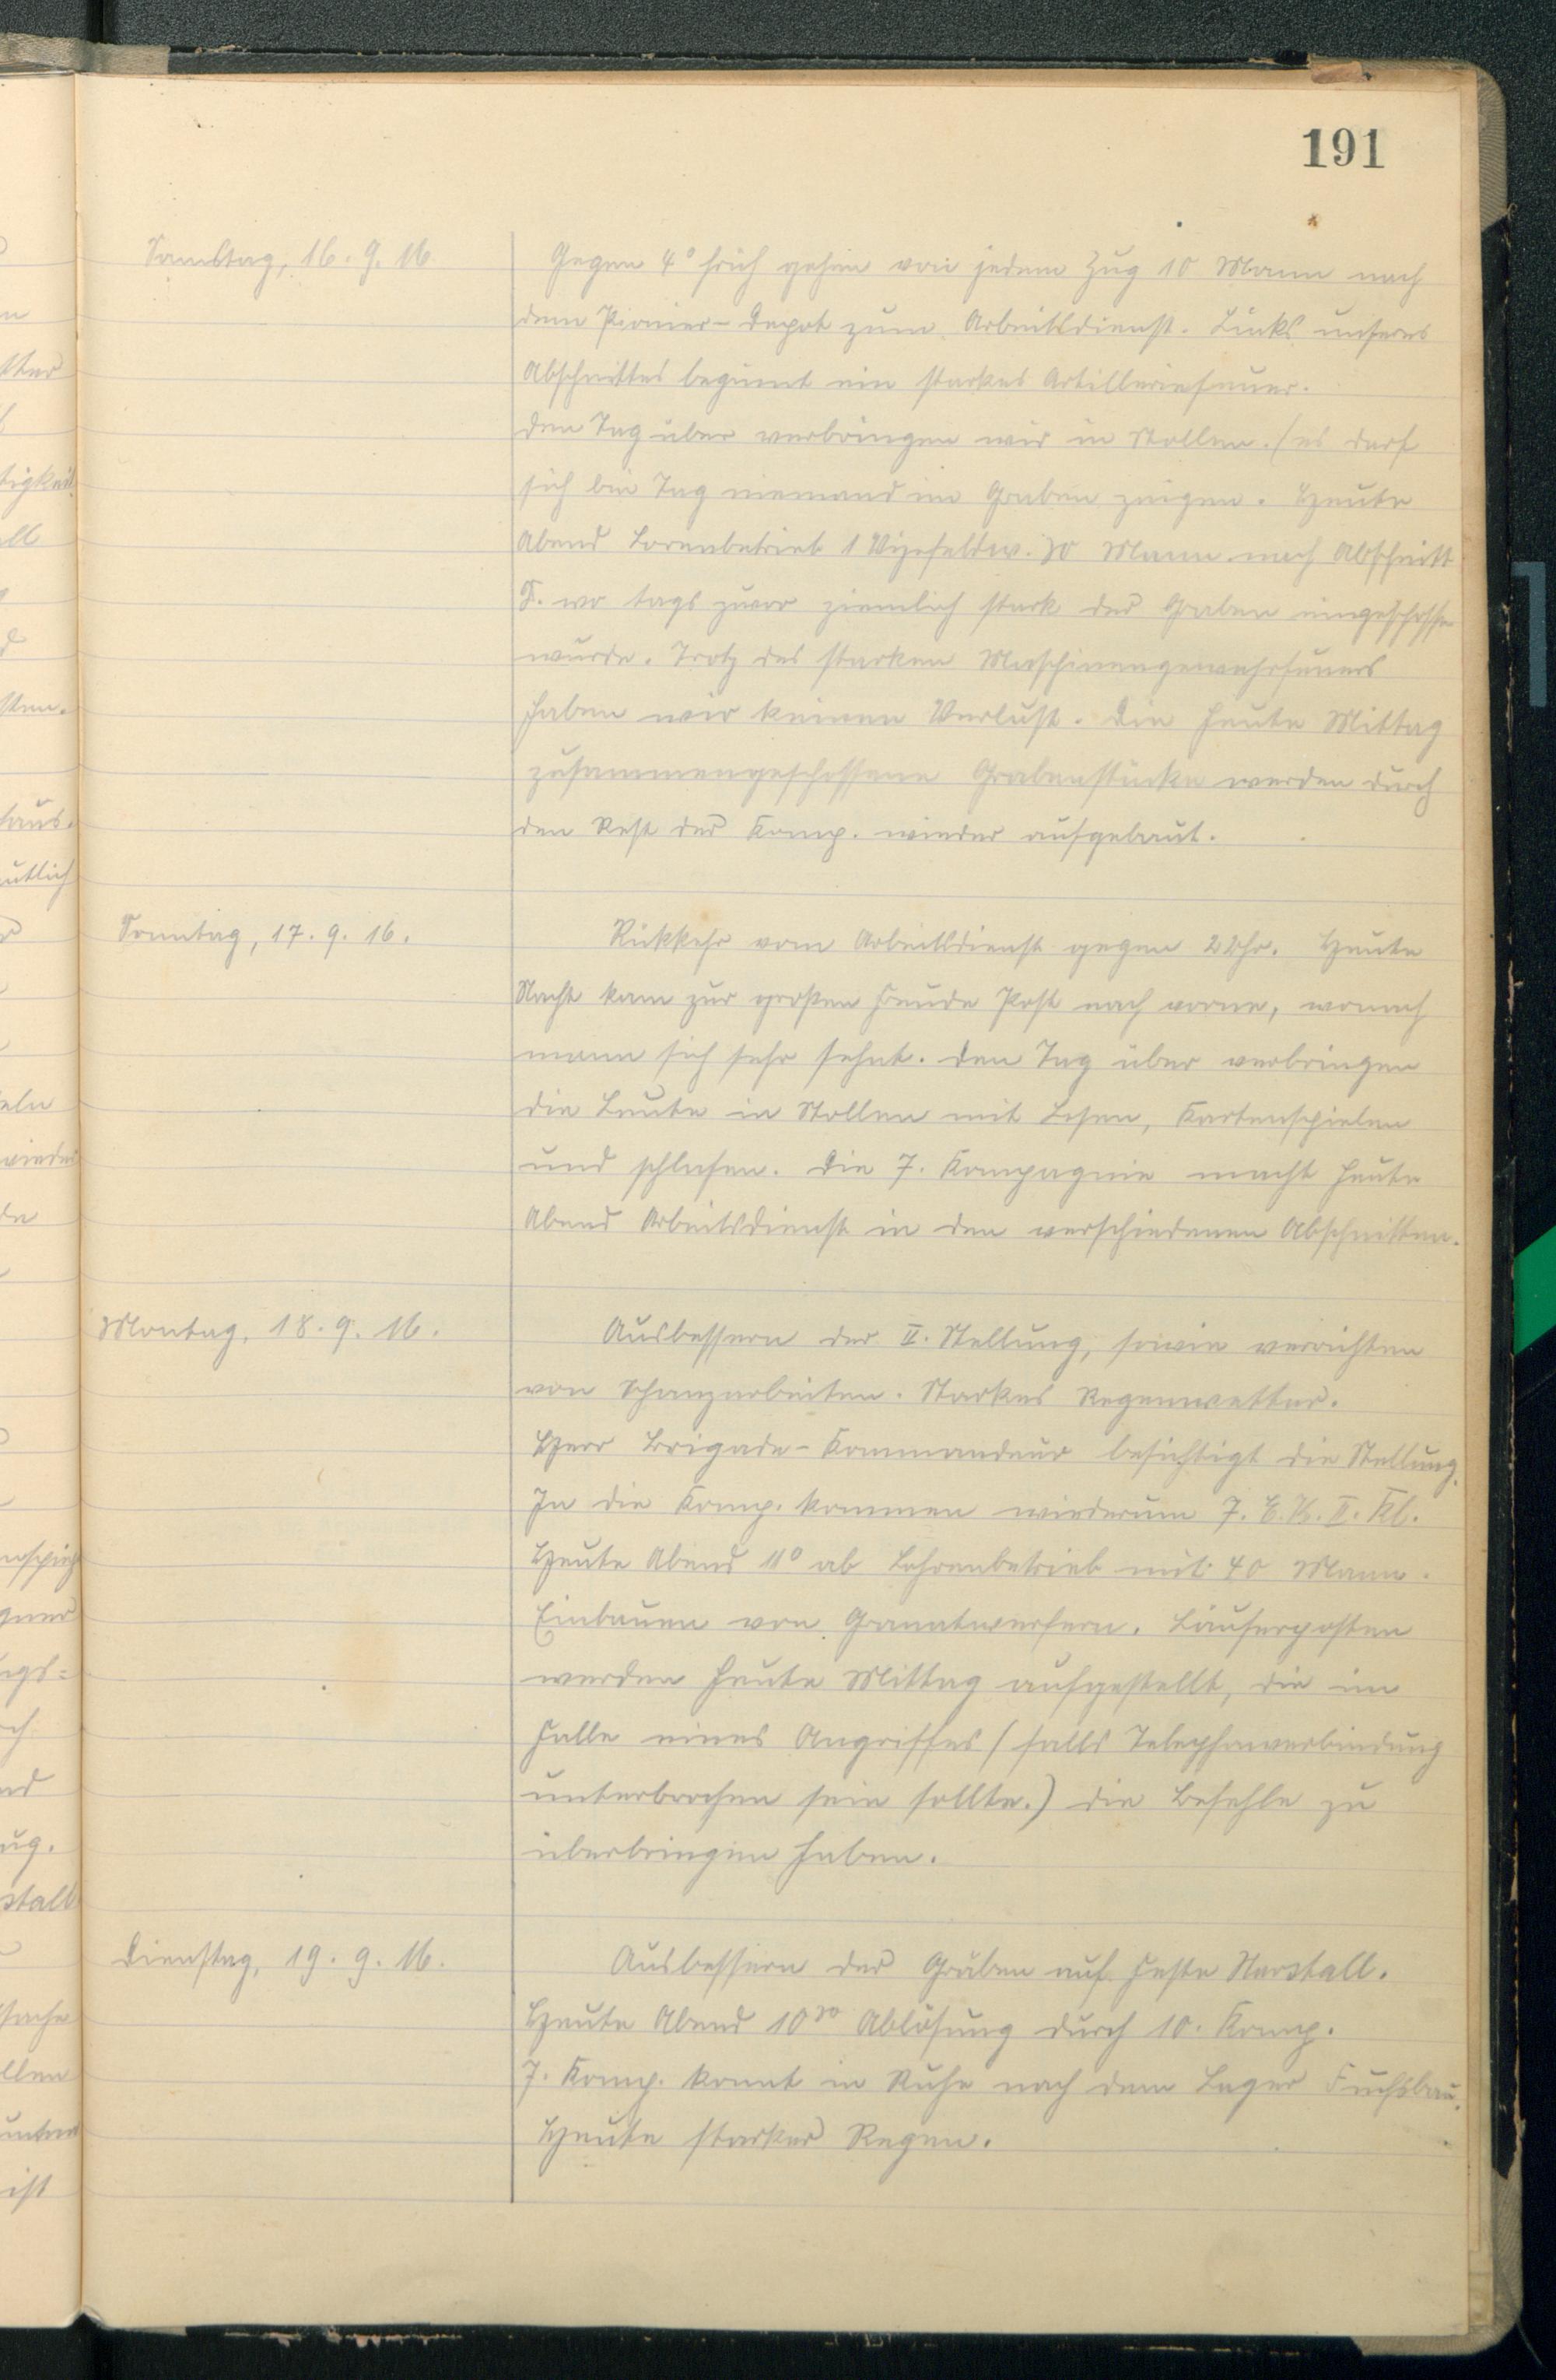 191
Samstag, 16. 9. 16
Gegen 4° früh gehen von jedem Zug 10 Mann nach
dem Pionier-Depot zum Arbeitsdienst. Links unseres
Abschnittes beginnt ein starkes Artilleriefeuer.
Den Tag über verbringen wir in Stollen. (es darf
sich bei Tag niemand im Graben zeigen. Heute
Abend Lorenbetrieb 1 Vizefeldw. 30 Mann nach Abschnitt
S. wo tags zuvor ziemlich stark der Graben eingeschossen
wurde. Trotz des starken Maschinengewehrfeuers
haben wir keinen Verlust. Die heute Mittag
zusammengeschossene Grabenstücke werden durch
den Rest der Komp. wieder aufgebaut.
Sonntag, 17. 9. 16.
Rükkehr vom Arbeitsdienst gegen 2 Uhr. Heute
Nacht kam zur großen Freude Post nach vorne, wonach
mann sich sehr sehnt. Den Tag über verbringen
die Leute in Stollen mit Lesen, Kartenspielen
und schlafen. Die 7. Kompagnie macht heute
Abend Arbeitsdienst in den verschiedenen Abschnitten.
Montag, 18. 9. 16.
Ausbessern der II. Stellung, sowie verrichten
von Schanzarbeiten. Starkes Regenwetter.
Herr Brigade-Kommandeur besichtigt die Stellung.
In die Komp. kommen wiederum 7. E. K. II. Kl.
Heute Abend 11° ab Lohrenbetrieb mit 40 Mann.
Einbauen von Granatwerfern. Läuferposten
werden heute Mittag aufgestellt, die im
Falle eines Angriffes (falls Telephonverbindung
unterbrochen sein sollte.) die Befehle zu
überbringen haben.
Dienstag, 19. 9. 16.
Ausbessern der Gräben auf Feste Marstall.
Heute Abend 10³⁰ Ablösung durch 10. Komp.
7. Komp. komt in Ruhe nach dem Lager Fuchsbau.
Heute starker Regen.